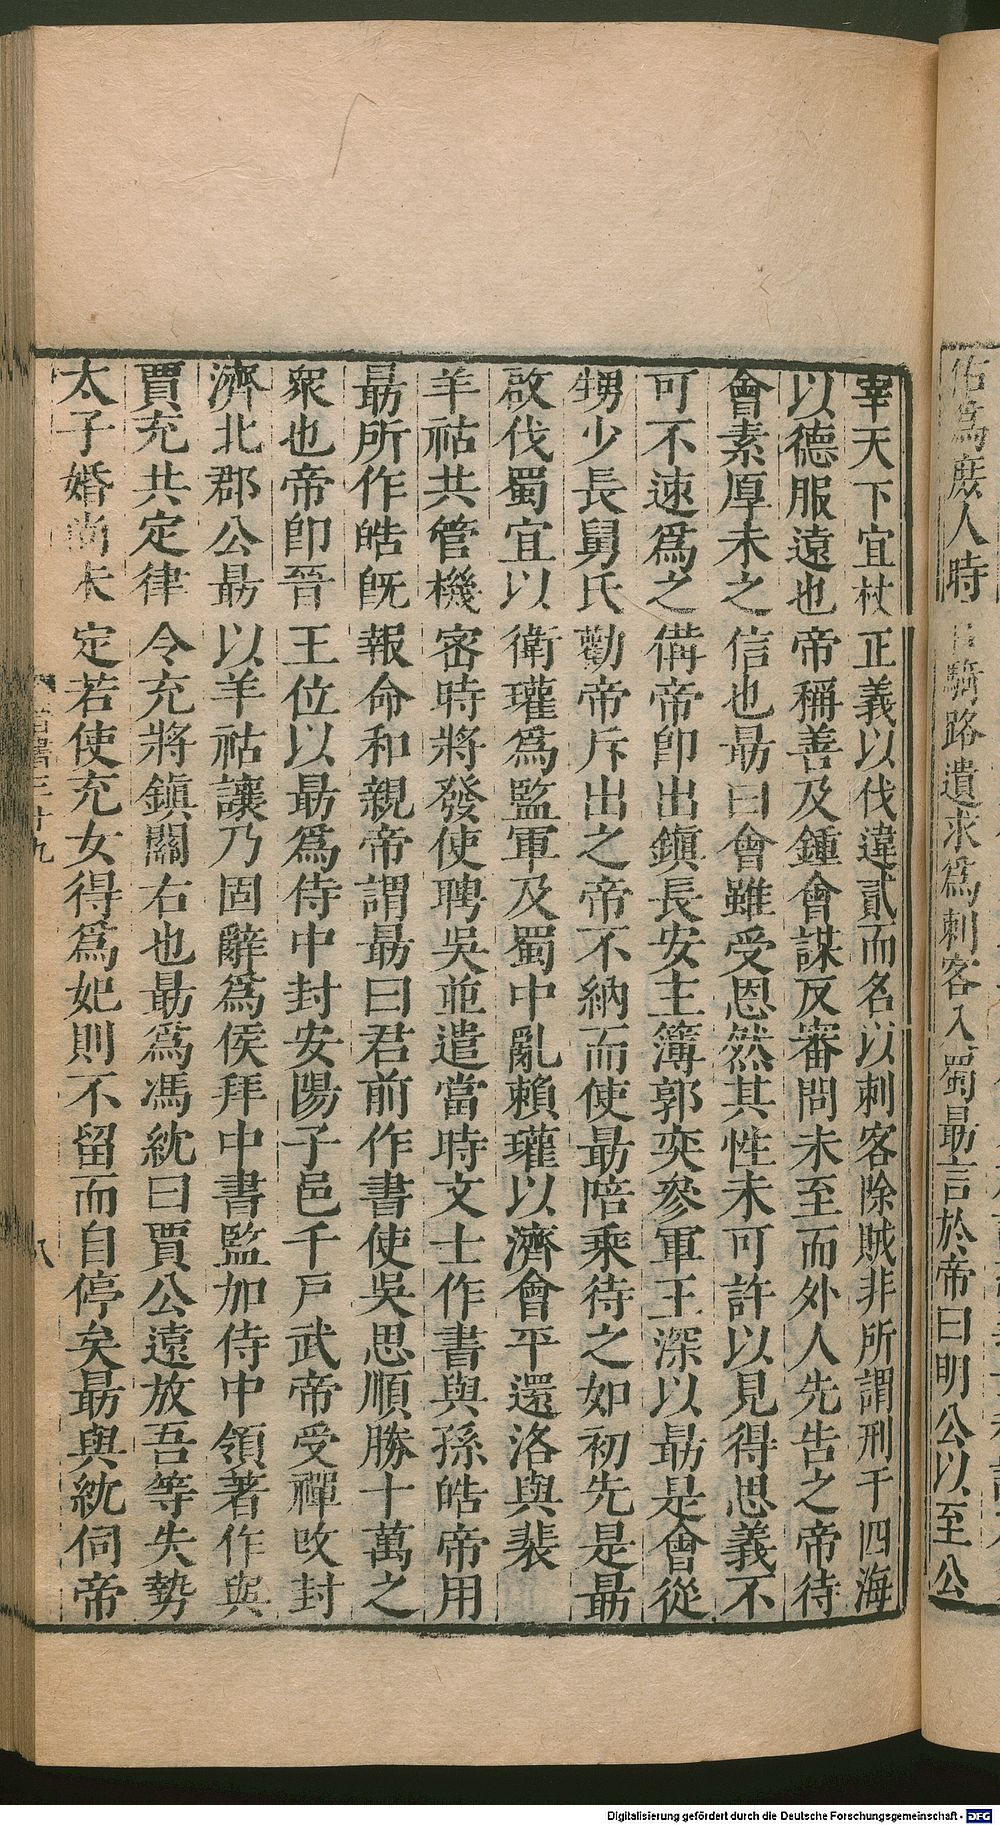 佑爲庶人時官騎路遺求爲刺客入蜀勗言於帝曰明公以至公
宰天下宜杖正義以伐違貳而名以刺客除賊非所謂刑于四海
以德服遠也帝稱善及鍾會謀反審問未至而外人先告之帝待
會素厚未之信也勗曰會雖受恩然其性未可許以見得思義不
可不速爲之備帝卽出鎭長安主簿郭奕參軍王深以勗是會從
甥少長舅氏勸帝斥出之帝不納而使勗陪乘待之如初先是勗
啟伐蜀宜以衛瓘爲監軍及蜀中亂賴瓘以濟會平還洛與裴
羊祜共管機密時將發使聘吳並遣當時文士作書與孫皓帝用
勗所作皓旣報命和親帝謂勗曰君前作書使吳思順勝十萬之
衆也帝卽晉王位以勗爲侍中封安陽子邑千戸武帝受禪攺封
濟北郡公勗以羊祜讓乃固辭爲侯拜中書監加侍中領著作與
賈充共定律令充將鎭關右也勗爲馮紞曰賈公遠放吾等失勢
太子婚尚未定若使充女得爲妃則不留而自停矣勗與紞伺帝
晉書三十九
八
Digitalisierung gefördert durch die Deutsche Forschungsgemeinschaft - DFG